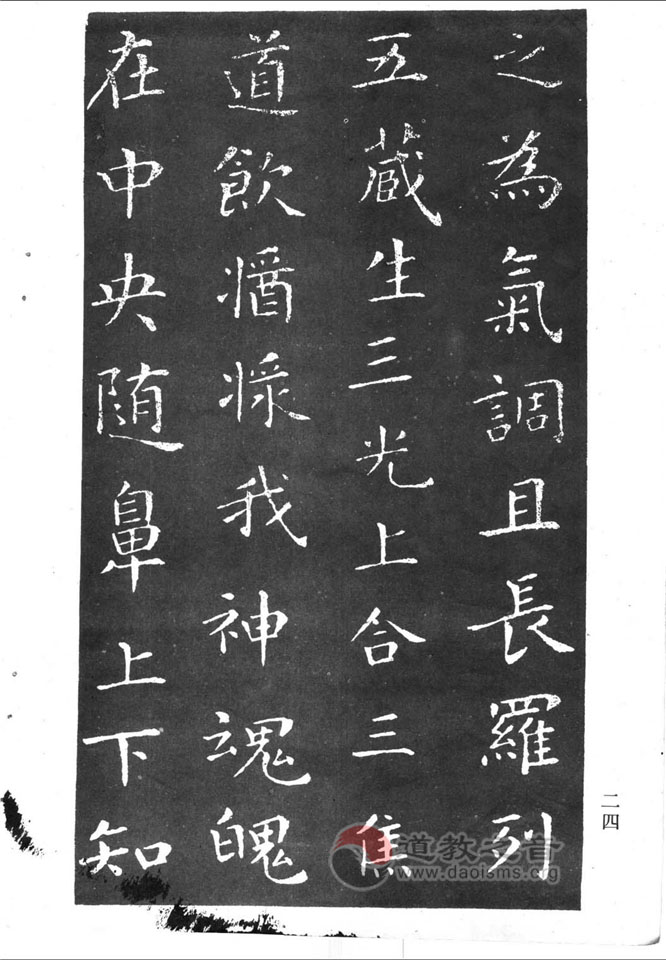 之為氣調且長羅列
五藏生三光上合三焦
道飲醬漿我神魂魄
在中央随鼻上下知
二四
道教之音
www.daoisms.org